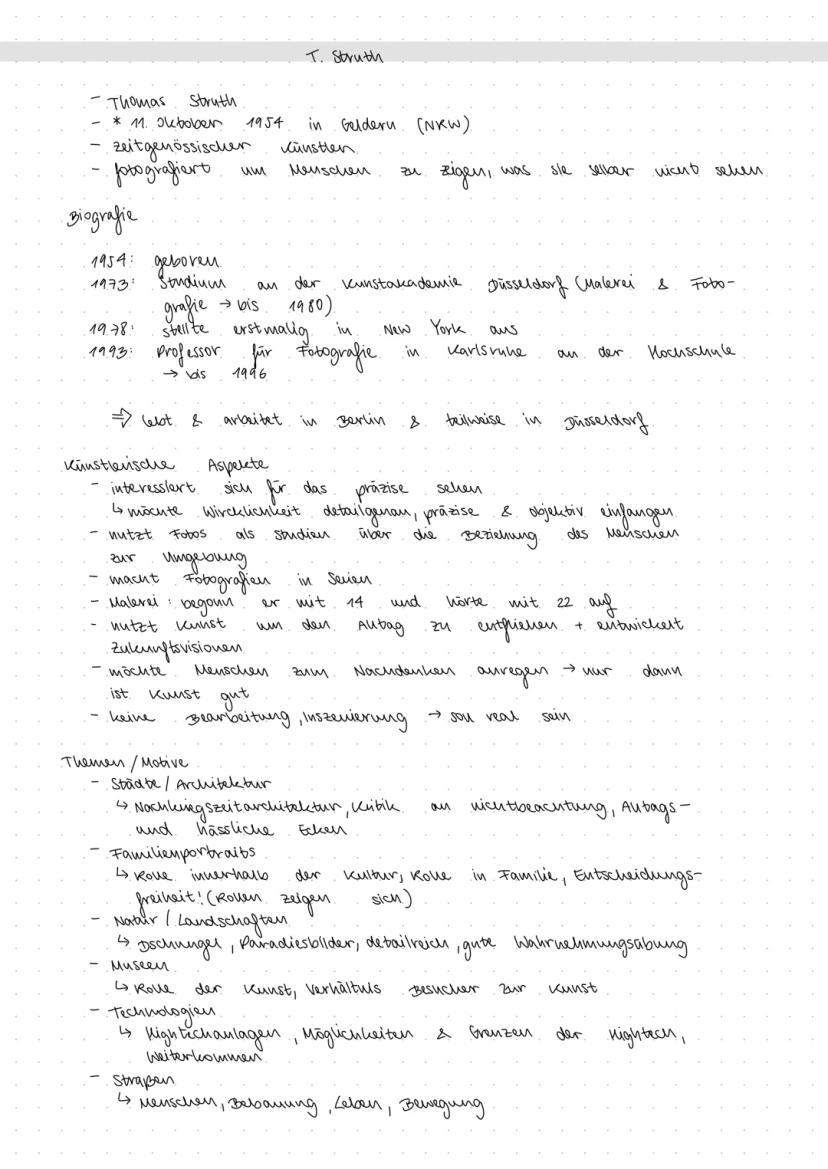 T. Struth
- Thomas Struth
- * 11. Oktober 1954 in Geldern (NRW)
- zeitgenössischer Künstler
- fotografiert um Menschen zu zeigen, was sie selber nicht sehen
Biografie
1954: geboren
1973: Studium an der Kunstakademie Düsseldorf (Malerei & Foto-
grafie → bis 1980)
1978: stellte erstmalig in New York aus
1993: Professor für Fotografie in Karlsruhe an der Hochschule
→ bis 1996
⇒ lebt & arbeitet in Berlin & teilweise in Düsseldorf
Künstlerische Aspekte
- interessiert sich für das präzise sehen
↳ möchte Wircklichkeit detailgenau, präzise & objektiv einfangen
- nutzt Fotos als Studien über die Beziehung des Menschen
zur Umgebung
- macht Fotografien in Serien
- Malerei: begonn er mit 14 und hörte mit 22 auf
- nutzt Kunst um den Alltag zu entfliehen + entwickelt
Zukunftsvisionen
- möchte Menschen zum Nachdenken anregen → nur dann
ist Kunst gut
- keine Bearbeitung, Inszenierung → soll real sein
Themen / Motive
- Städte / Architektur
↳ Nachkriegszeitarchitektur, Kritik an nichtbeachtung, Alltags-
und hässliche Ecken
- Familienportraits
↳ Rolle innerhalb der Kultur, Rolle in Familie, Entscheidungs-
freiheit! (Rollen zeigen sich)
- Natur / Landschaften
↳ Dschungel, Paradiesbilder, detailreich, gute Wahrnehmungsübung
- Museen
↳ Rolle der Kunst, Verhältnis Besucher zur Kunst
- Technologien
↳ Hightechanlagen, Möglichkeiten & Grenzen der Hightech,
Weiterkommen
- Straßen
↳ Menschen, Bebauung, Leben, Bewegung